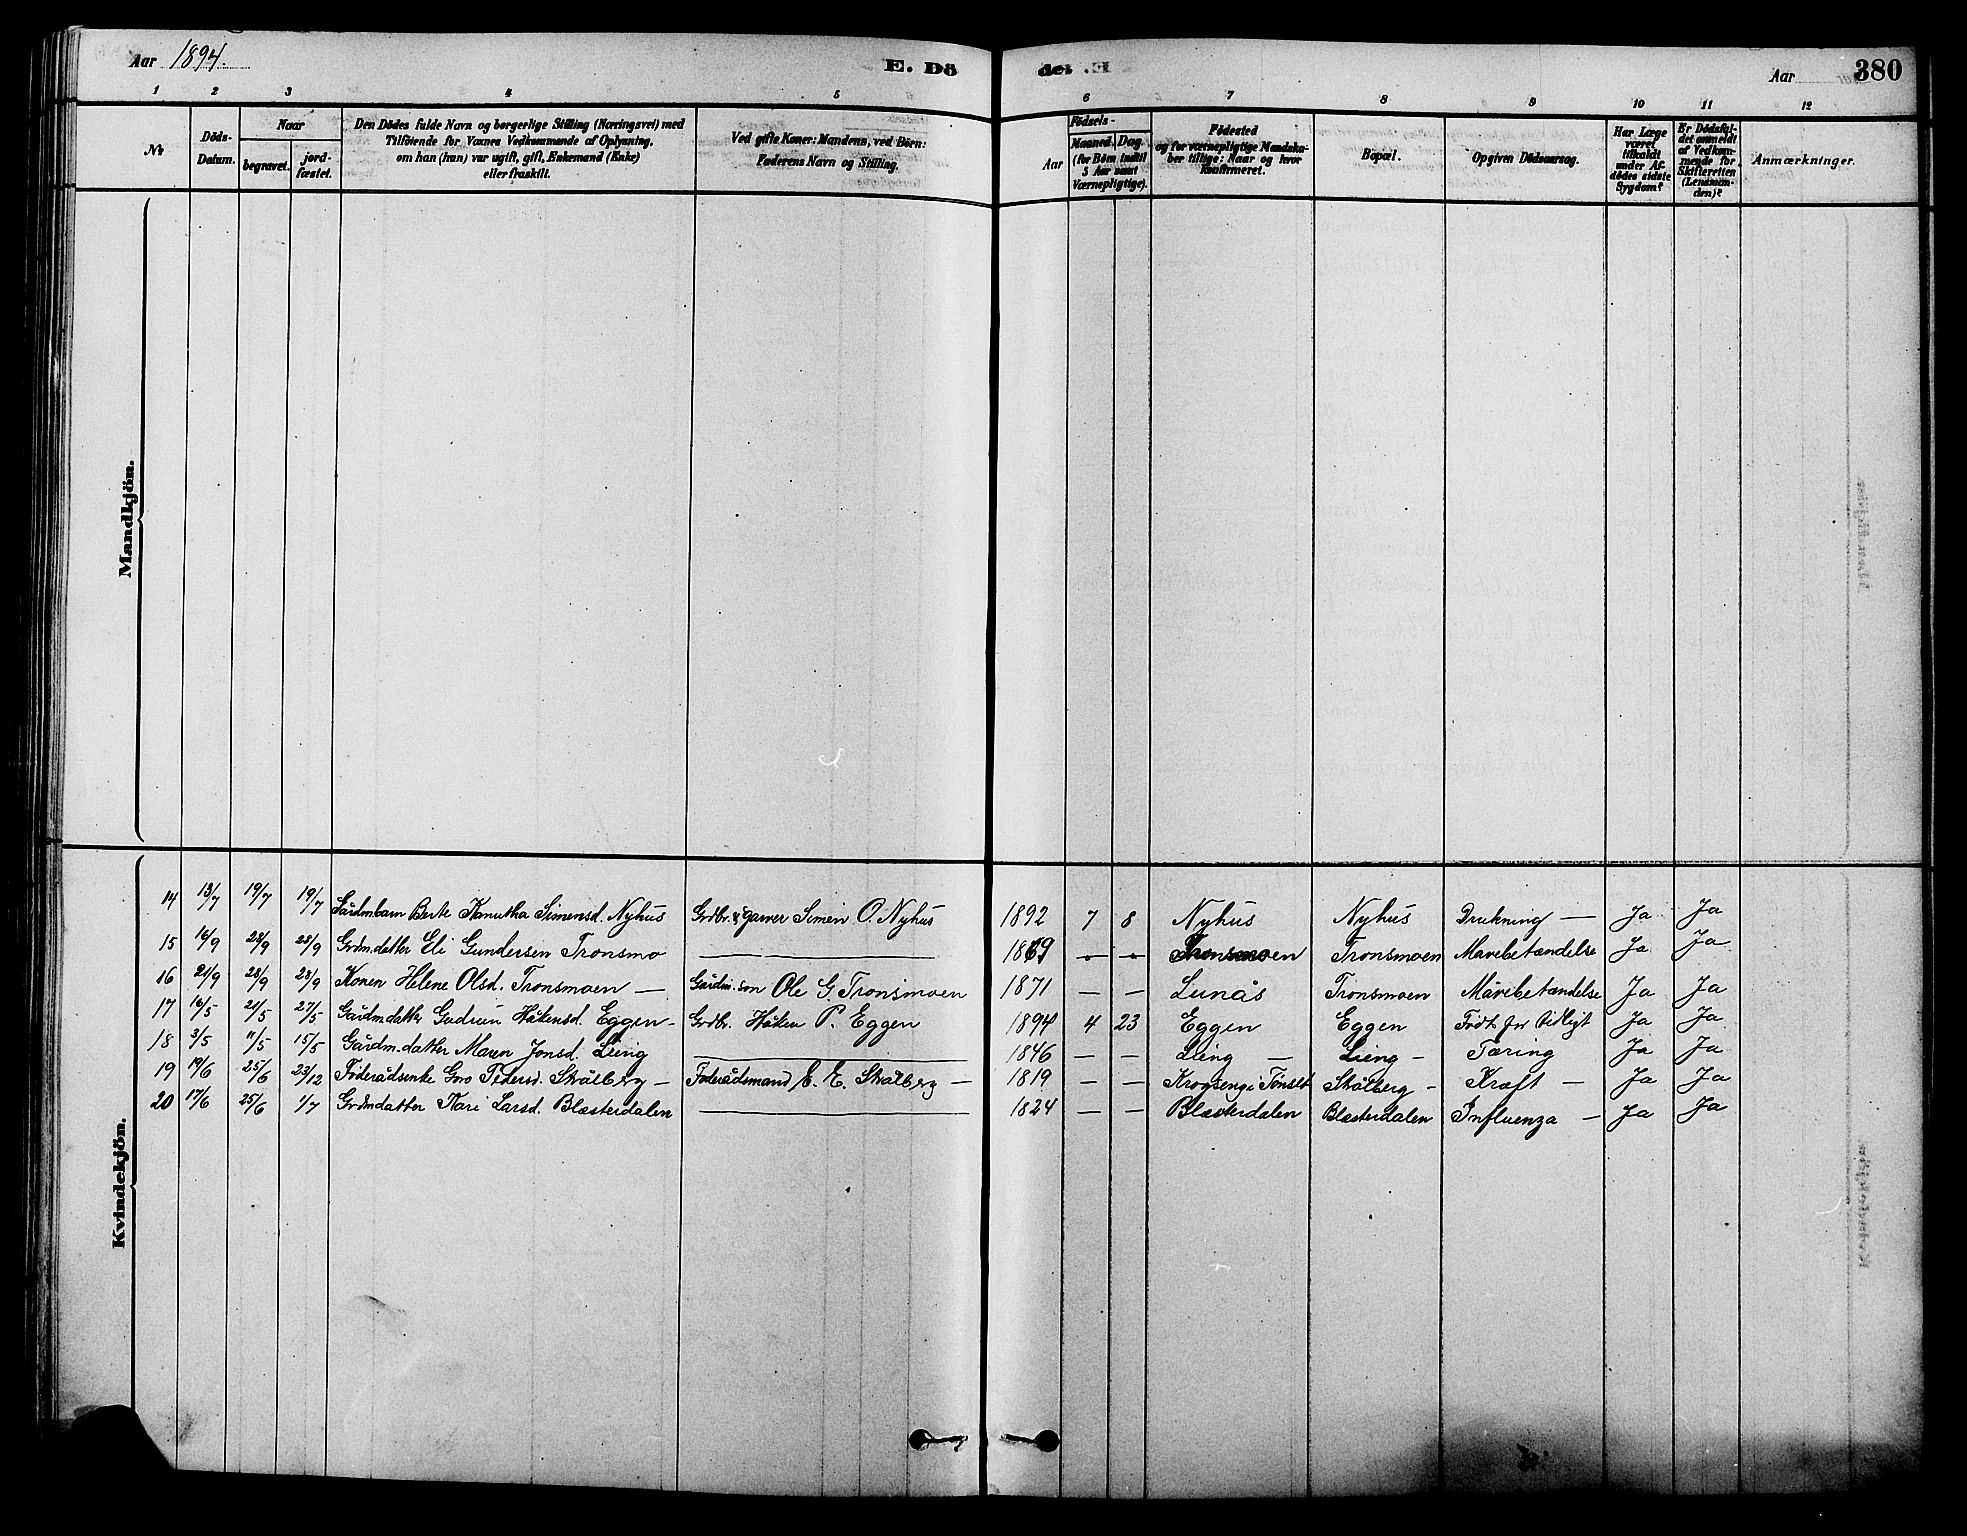 Aar 1894. E. Dö
de. E Aar 380
1 2 3 4 5 6 7 8 9 10 11 12
No
Döds-Datum.
Naar
begravet.
jord-fæstet.
Den Dödes fulde Navn og borgerlige Stilling (Næringsvei) med
Tilföiende for Voxnes Vedkommende af Oplysning,
om han (hun) var ugift, gift, Enkemand (Enke)
eller fraskilt.
Ved gifte Koner: Mandens, ved Börn:
Faderens Navn og Stilling.
Födsels-
Aar
Maaned. Dag.
(for Börn indtil
5 Aar samt
Værnepligtige).
Födested
og for værnepligtige Mandska-
ber tillige: Naar og hvor
konfirmeret.
Bopæl.
Opgiven Dödsaarsag.
Har Læge
været
tilkaldt
under Af-
dödes sidste
Sygdom?
Er Dödsfal-
det anmeldt
af Vedkom-
mende for
Skifteretten
(Lensman-
den)?
Anmærkninger.
Mandkjön.
Kvindekjön.
14 13/7 19/7 19/7 Gårdmbarn Berte Kanutha Simensd. Nyhus Grdbr. & garver Simen O. Nyhus 1892 7 8 Nyhus Nyhus Drukning — Ja Ja
15 16/9 28/9 28/9 Grdmdatter Eli Gundersen Tronsmo — 1869 - - Tronsmoen Tronsmoen Mavebetændelse Ja Ja
16 21/9 28/9 28/9 Konen Helene Olsd. Tronsmoen — Gårdm. son Ole G. Tronsmoen 1871 — — Lunås Tronsmoen Mavebetændelse Ja Ja
17 16/5 21/5 27/5 Gårdmdatter Gudrun Håkensd. Eggen - Grdbr. Håken P. Eggen 1894 4 23 Eggen Eggen Født for tidligt Ja Ja
18 3/5 11/5 15/5 Gårdm.datter Maren Jonsd. Lieng — 1846 — — Lieng — Lieng - Tæring Ja Ja
19 19/6 25/6 23/12 Føderådsenke Gro Pedersd. Strålberg — Føderådsmand E. E. Strålberg — 1819 — — Krogsengi Tønset Strålberg - Kræft — Ja Ja
20 17/6 25/6 1/7 Grdmdatter Kari Larsd. Blæsterdalen — 1824 — — Blæsterdalen Blæsterdalen Influenza — Ja Ja